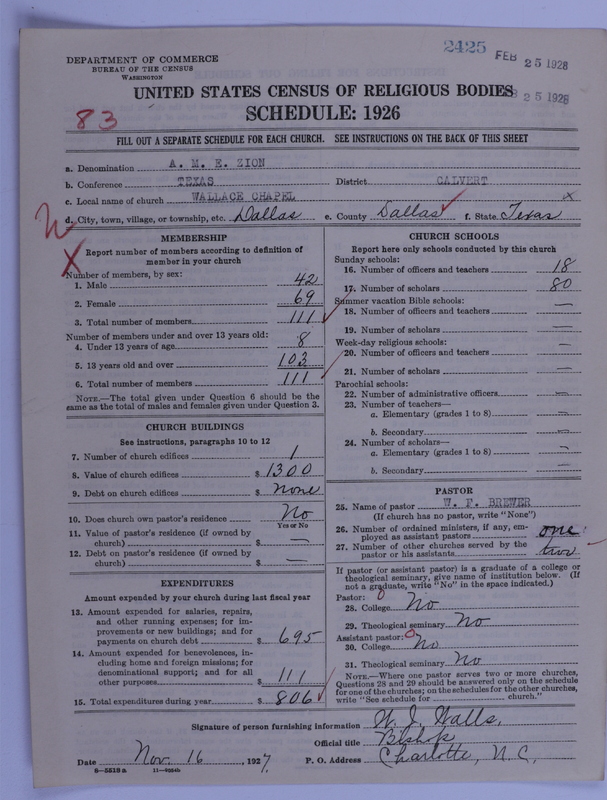 2425 FEB 25 1928
DEPARTMENT OF COMMERCE
BUREAU OF THE CENSUS
WASHINGTON
UNITED STATES CENSUS OF RELIGIOUS BODIES
B 25 1928
83
SCHEDULE: 1926
FILL OUT A SEPARATE SCHEDULE FOR EACH CHURCH. SEE INSTRUCTIONS ON THE BACK OF THIS SHEET
a. Denomination A. M. E. ZION
b. Conference TEXAS District CALVERT
c. Local name of church WALLACE CHAPEL x
d. City, town, village, or township, etc. Dallas e. County Dallas f. State Texas
MEMBERSHIP
Report number of members according to definition of
member in your church
Number of members, by sex:
1. Male 42
2. Female 69
3. Total number of members 111
Number of members under and over 13 years old:
4. Under 13 years of age 8
5. 13 years old and over 103
6. Total number of members 111
NOTE.—The total given under Question 6 should be the
same as the total of males and females given under Question 3.
CHURCH BUILDINGS
See instructions, paragraphs 10 to 12
7. Number of church edifices 1
8. Value of church edifices $ 1300
9. Debt on church edifices $ None
10. Does church own pastor's residence No
Yes or No
11. Value of pastor's residence (if owned by
church) $ —
12. Debt on pastor's residence (if owned by
church) $ —
EXPENDITURES
Amount expended by your church during last fiscal year
13. Amount expended for salaries, repairs,
and other running expenses; for im-
provements or new buildings; and for
payments on church debt $ 695
14. Amount expended for benevolences, in-
cluding home and foreign missions; for
denominational support; and for all
other purposes $ 111
15. Total expenditures during year $ 806
CHURCH SCHOOLS
Report here only schools conducted by this church
Sunday schools:
16. Number of officers and teachers 18
17. Number of scholars 80
Summer vacation Bible schools:
18. Number of officers and teachers —
19. Number of scholars —
Week-day religious schools: —
20. Number of officers and teachers
21. Number of scholars —
Parochial schools:
22. Number of administrative officers —
23. Number of teachers—
a. Elementary (grades 1 to 8) —
b. Secondary —
24. Number of scholars—
a. Elementary (grades 1 to 8) —
b. Secondary —
PASTOR
25. Name of pastor W. F. BREWER
(If church has no pastor, write "None")
26. Number of ordained ministers, if any, em-
ployed as assistant pastors one
27. Number of other churches served by the
pastor or his assistants two
If pastor (or assistant pastor) is a graduate of a college or
theological seminary, give name of institution below. (If
not a graduate, write "No" in the space indicated.)
Pastor: 0
28. College No
29. Theological seminary No
Assistant pastor: 0
30. College No
31. Theological seminary No
NOTE.—Where one pastor serves two or more churches,
Questions 28 and 29 should be answered only on the schedule
for one of the churches; on the schedules for the other churches,
write "See schedule for church."
Signature of person furnishing information W. J. Walls,
Official title Bishop
Date Nov. 16, 1927. P. O. Address Charlotte, N. C.
6—5518a